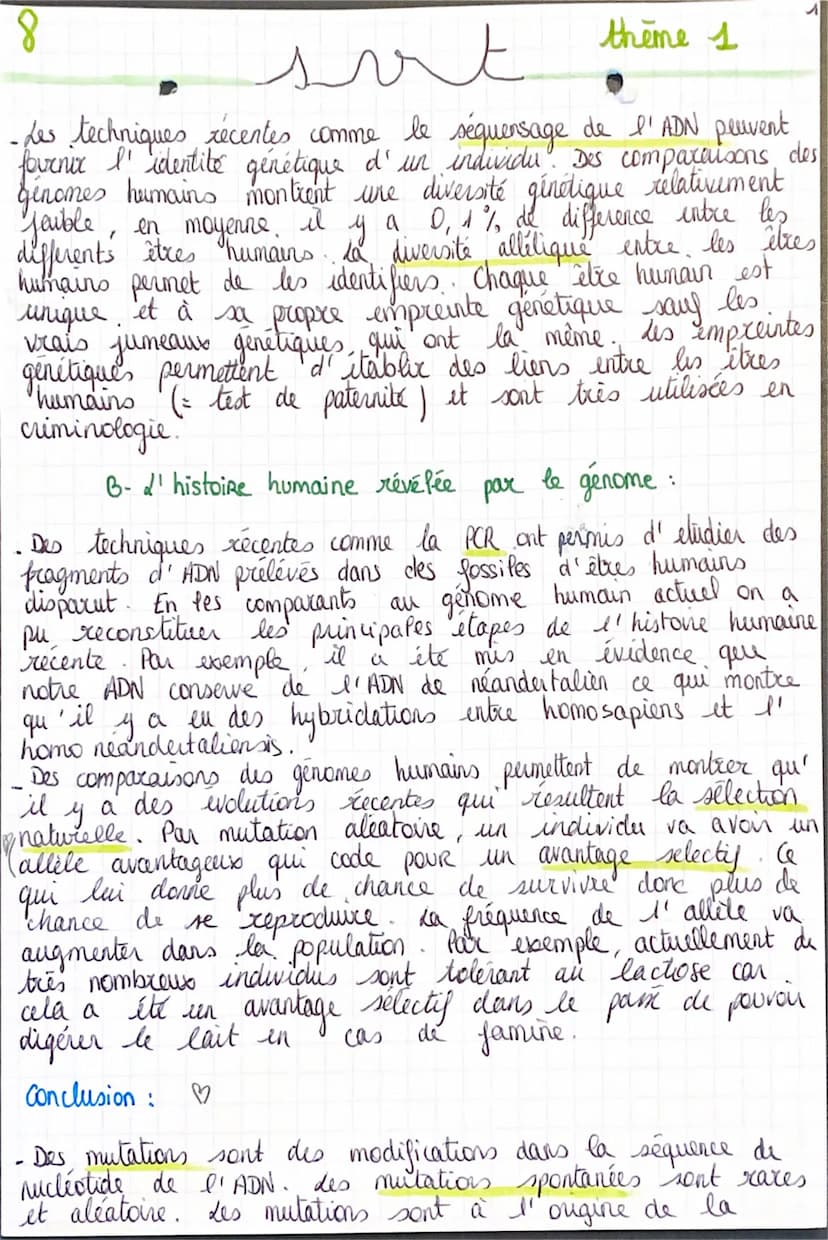 8
svt
thème 1
1
- Les techniques récentes comme le séquensage de l'ADN peuvent
fournir l'identité génétique d'un individu. Des comparaisons des
génomes humains montrent une diversité génétique relativement
faible, en moyenne, il y a 0,1% de difference entre les
différents êtres humains. La diversité allélique entre les êtres
humains permet de les identifiers. Chaque être humain est
unique et à sa propre empreinte génétique sauf les
vrais jumeaux génétiques qui ont la même. Les empreintes
génétiques permettent d'établir des liens entre les êtres
humains (= test de paternité) et sont très utilisées en
criminologie.
B- L'histoire humaine révélée par le génome :
. Des techniques récentes comme la PCR ont permis d'étudier des
fragments d'ADN prélévés dans des fossiles d'êtres humains
disparut. En les comparants au génome humain actuel on a
pu reconstituer les principales étapes de l'histoire humaine
récente. Par exemple, il a été mis en évidence que
notre ADN conserve de l'ADN de néandertalien ce qui montre
qu'il y a eu des hybridations entre homosapiens et l'
homo néandertaliensis.
- Des comparaisons des génomes humains permettent de montrer qu'
il y a des évolutions récentes qui résultent la sélection
naturelle. Par mutation aléatoire, un individu va avoir un
allèle avantageux qui code pour un avantage selectif. Ce
qui lui donne plus de chance de survivre donc plus de
chance de se reproduire. La fréquence de l'allèle va
augmenter dans la population. Par exemple, actuellement de
très nombreux individus sont tolérant au lactose car
cela a été un avantage sélectif dans le passé de pouvoir
digérer le lait en cas de famine.
Conclusion : ♡
- Des mutations sont des modifications dans la séquence de
nucléotide de l'ADN. Les mutations spontanées sont rares
et aléatoire. Les mutations sont à l'origine de la